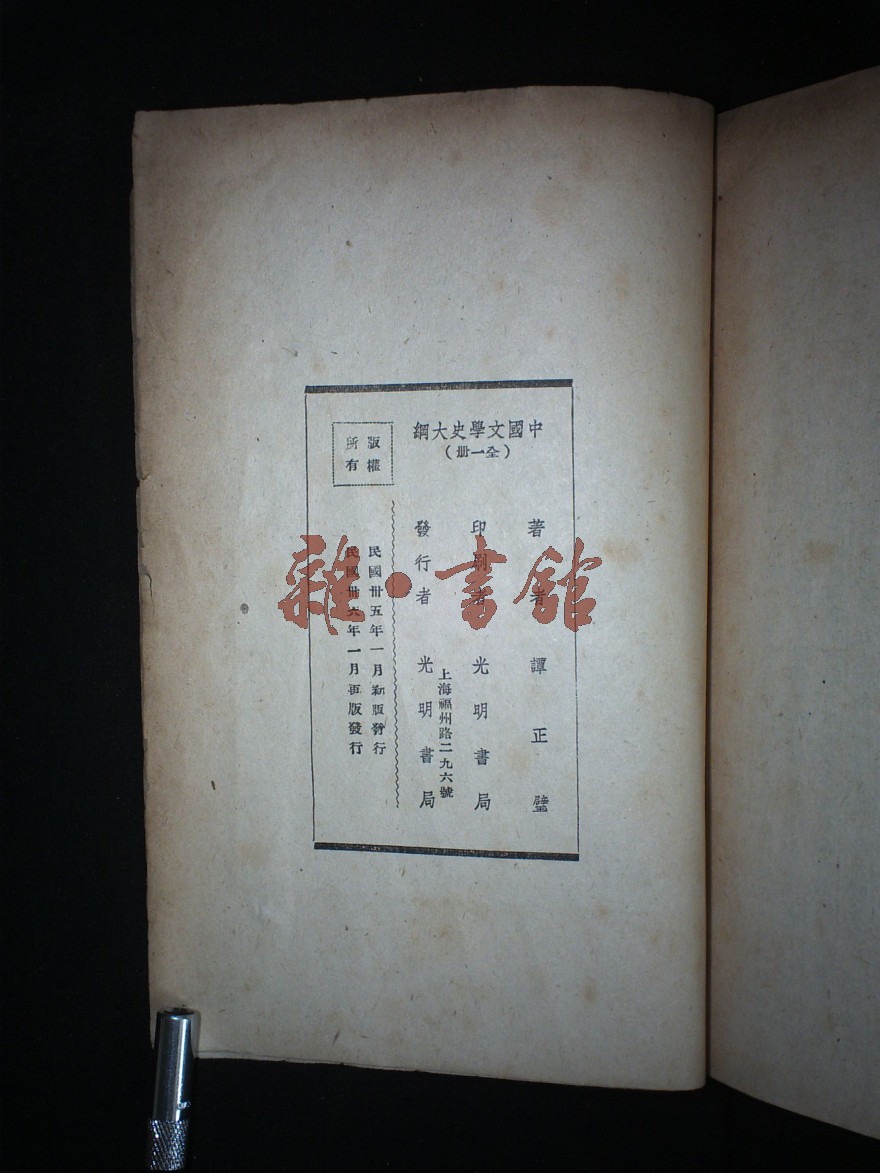 中國文學史大綱
（全一册）
著者 譚正璧
印刷者 光明書局
上海福州路二九六號
發行者 光明書局
民國卅五年一月新版發行
民國卅六年一月再版發行
版權
所有
雜·書館